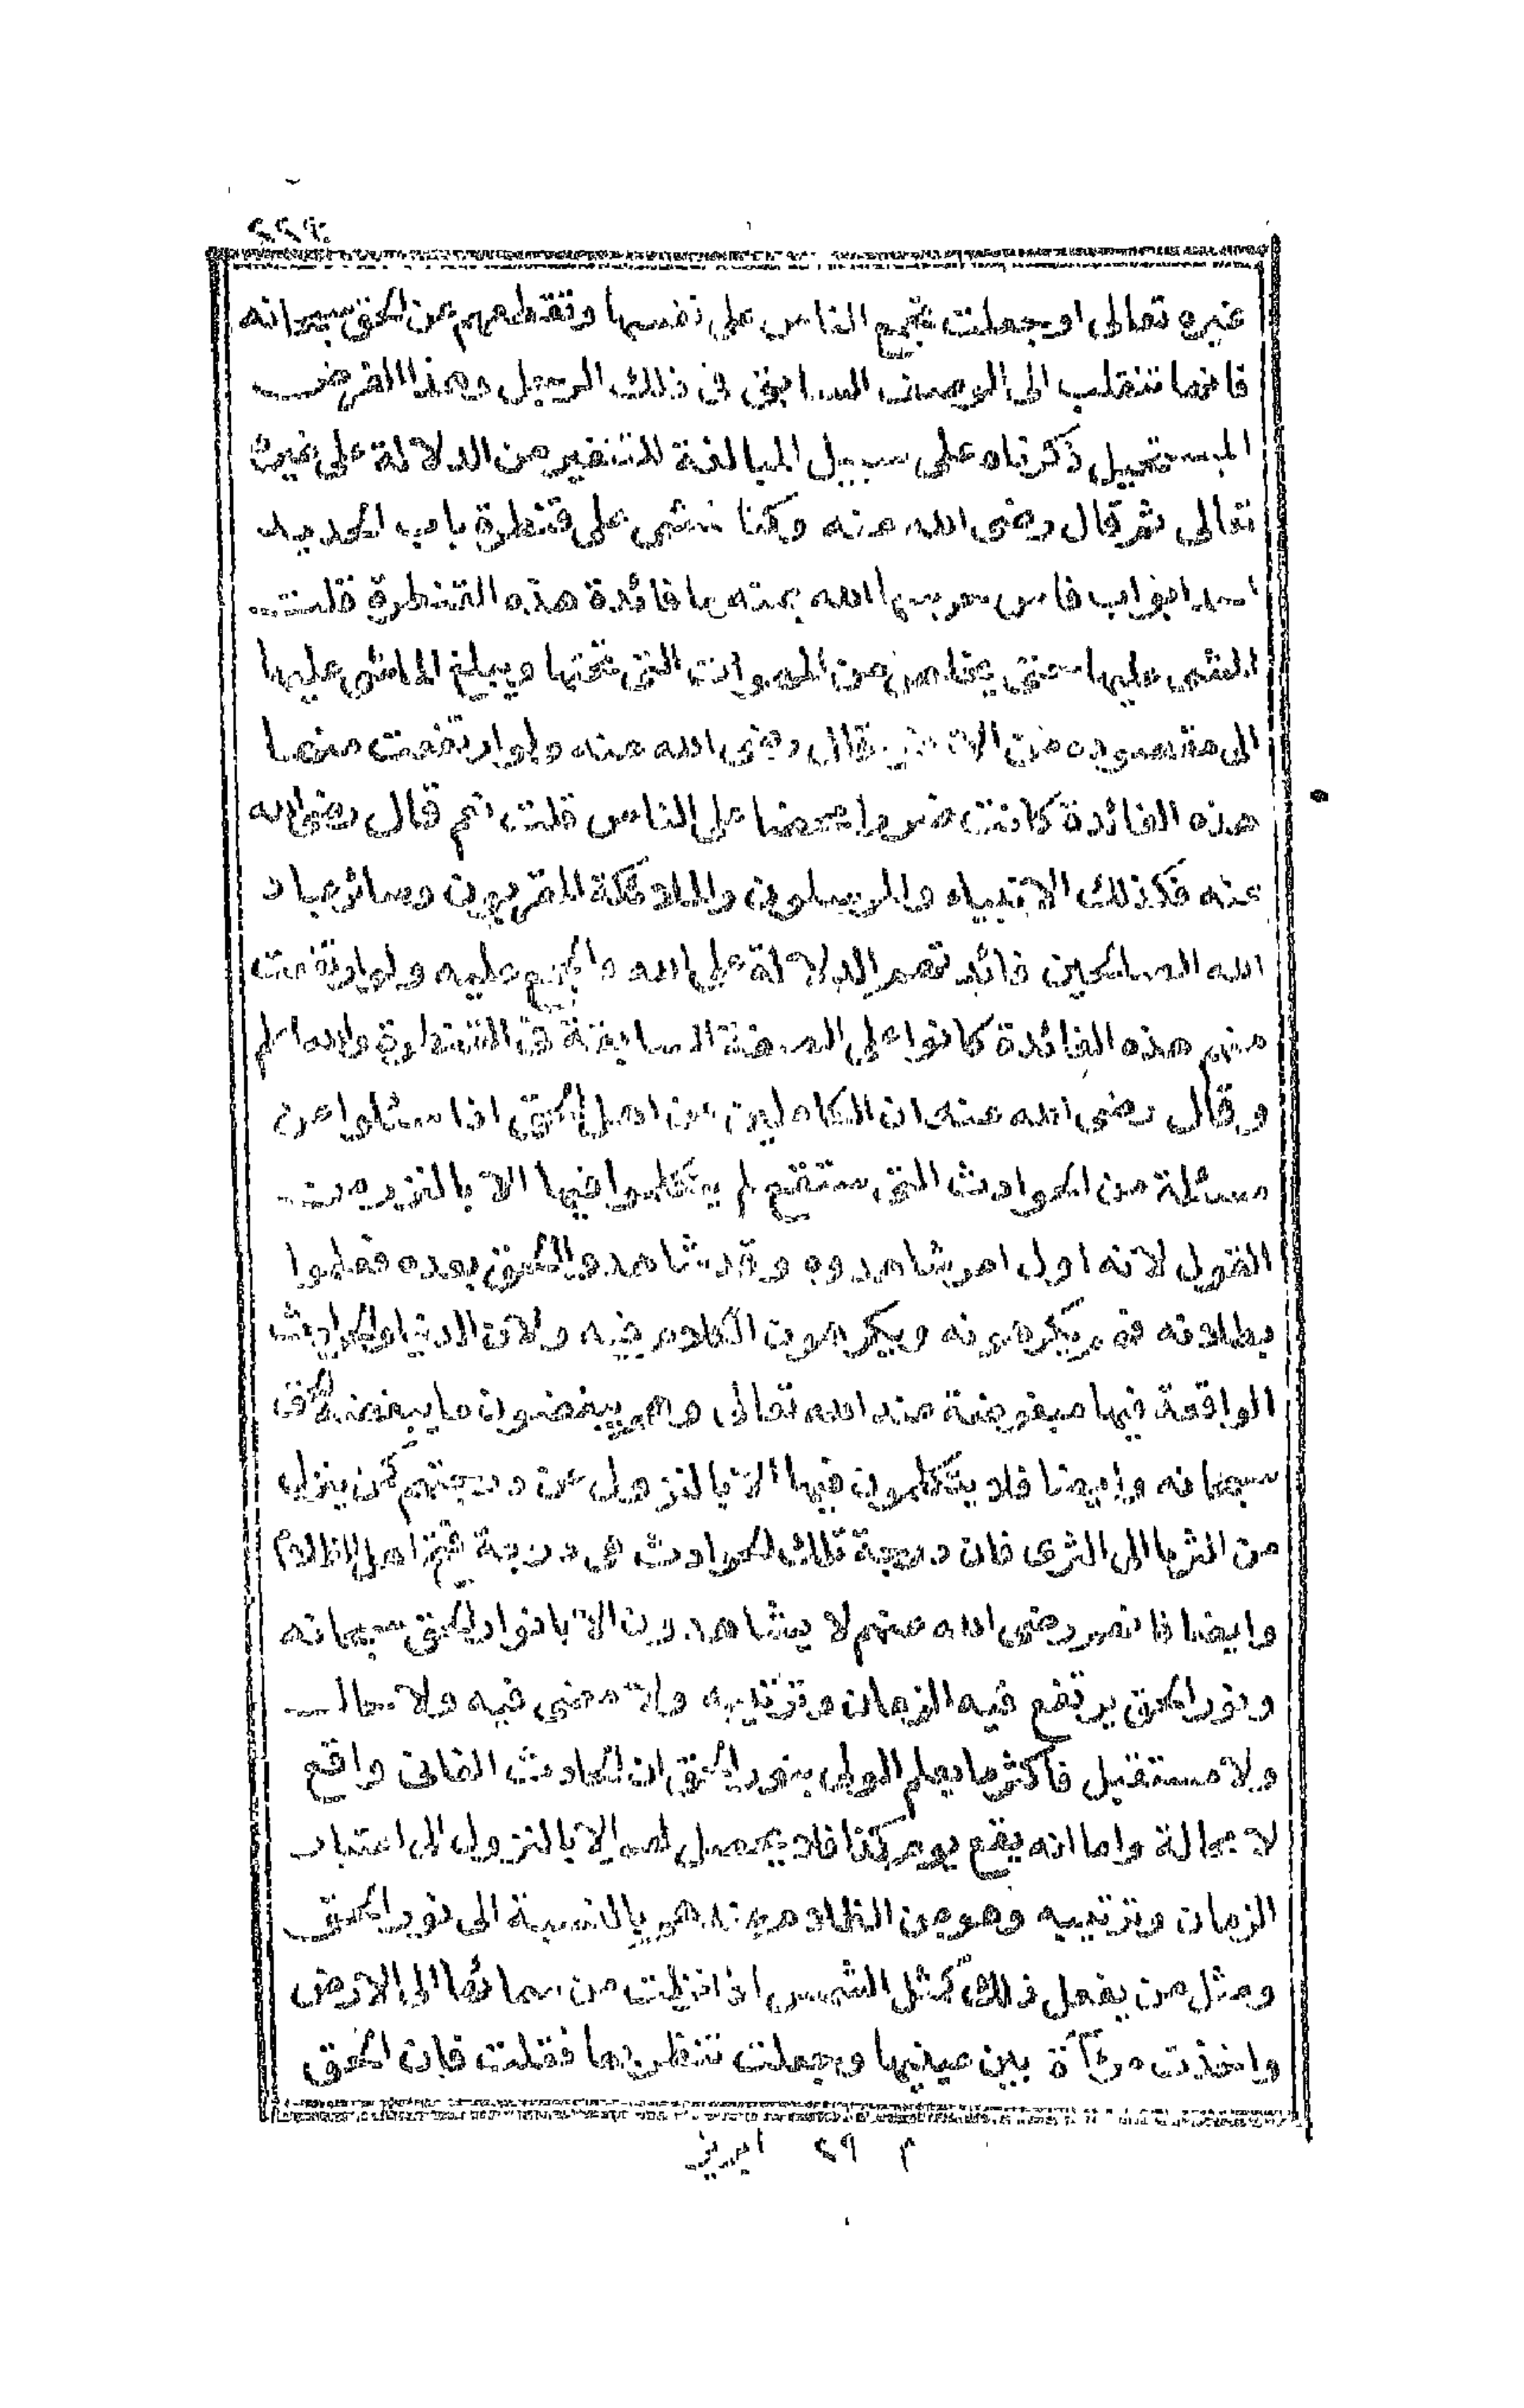 غيره تعالى او جعلت تجمع الناس على نفسها وتقطعهم عن الحق سبحانه
فانها تنقلب الى الوصف السابق فى ذلك الرجل وهذا الفرض
المستحيل ذكرناه على سبيل المبالغة للتنفير من الدلالة على غيره
تعالى ثم قال رضى الله عنه وكنا نمشى على قنطرة باب الحديد
احد ابواب فاس حرسها الله بمنه ما فائدة هذه القنطرة قلت
المشى عليها حتى يتخلص من المهوات التى تحتها ويبلغ الماشى عليها
الى مقصوده من الارض قال رضى الله عنه ولو ارتفعت منها
هذه الفائدة كانت ضررا محضا على الناس قلت نعم قال رضى الله
عنه فكذلك الانبياء والمرسلون والملائكة المقربون وسائر عباد
الله الصالحين فائدتهم الدلالة على الله والجمع عليه ولو ارتفعت
منهم هذه الفائدة كانوا على الصفة السابقة فى القنطرة والله اعلم
وقال رضى الله عنه ان الكاملين من اهل الحق اذا سئلوا عن
مسئلة من الحوادث التى ستقع لم يتكلموا فيها الا بالنزر من
القول لانه اول امر شاهدوه وقد شاهدوا الحق بعده فعلموا
بطلانه فهم يكرهونه ويكرهون الكلام فيه ولان الدنيا والحوادث
الواقعة فيها مبغوضة عند الله تعالى وهم يبغضون ما يبغضه الحق
سبحانه وايضا فلا يتكلمون فيها الا بالنزول عن درجتهم كمن ينزل
من الثريا الى الثرى فان درجة تلك الحوادث هى درجة فتح اهل الظلام
وايضا فانهم رضى الله عنهم لا يشاهدون الا بانوار الحق سبحانه
ونور الحق يرتفع فيه الزمان وترتيبه ولا مضى فيه ولا حال
ولا مستقبل فاكثر ما يعلم الولى بنور الحق ان الحادث الفانى واقع
لا محالة واما انه يقع يوم كذا فلا يحصل لهم الا بالنزول الى اعتبار
الزمان وترتيبه وهو من الظلام عندهم بالنسبة الى نور الحق
ومثل من يفعل ذلك كمثل الشمس اذا نزلت من سمائها الى الارض
واخذت مرآة بين عينيها وجعلت تنظر بها فقلت فان الحق
م ٢٩ ابريز